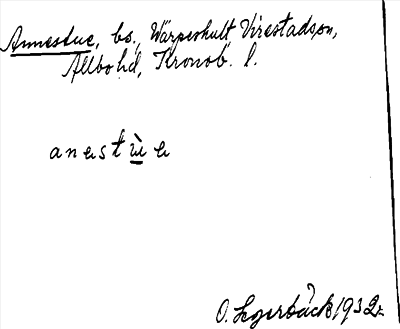 Annestue, bs., Wärpeshult Virestadssn,
Allbohd, Kronob. l.
anestùe
O. Legerbäck 1932.